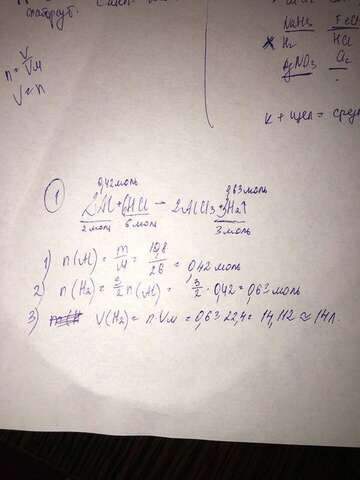 n = V/Vм
V = n
NaHS
H₂
HCl
AgNO₃
K + щел = сред
①
0,42 моль
0,63 моль
2Al + 6HCl → 2AlCl₃ + 3H₂↑
2 моль
6 моль
3 моль
1) n(Al) = m/M = 10,8/26 = 0,42 моль
2) n(H₂) = 3/2 n(Al) = 3/2 · 0,42 = 0,63 моль
3) V(H₂) = n Vм = 0,63·22,4 = 14,112 ≈ 14 л.